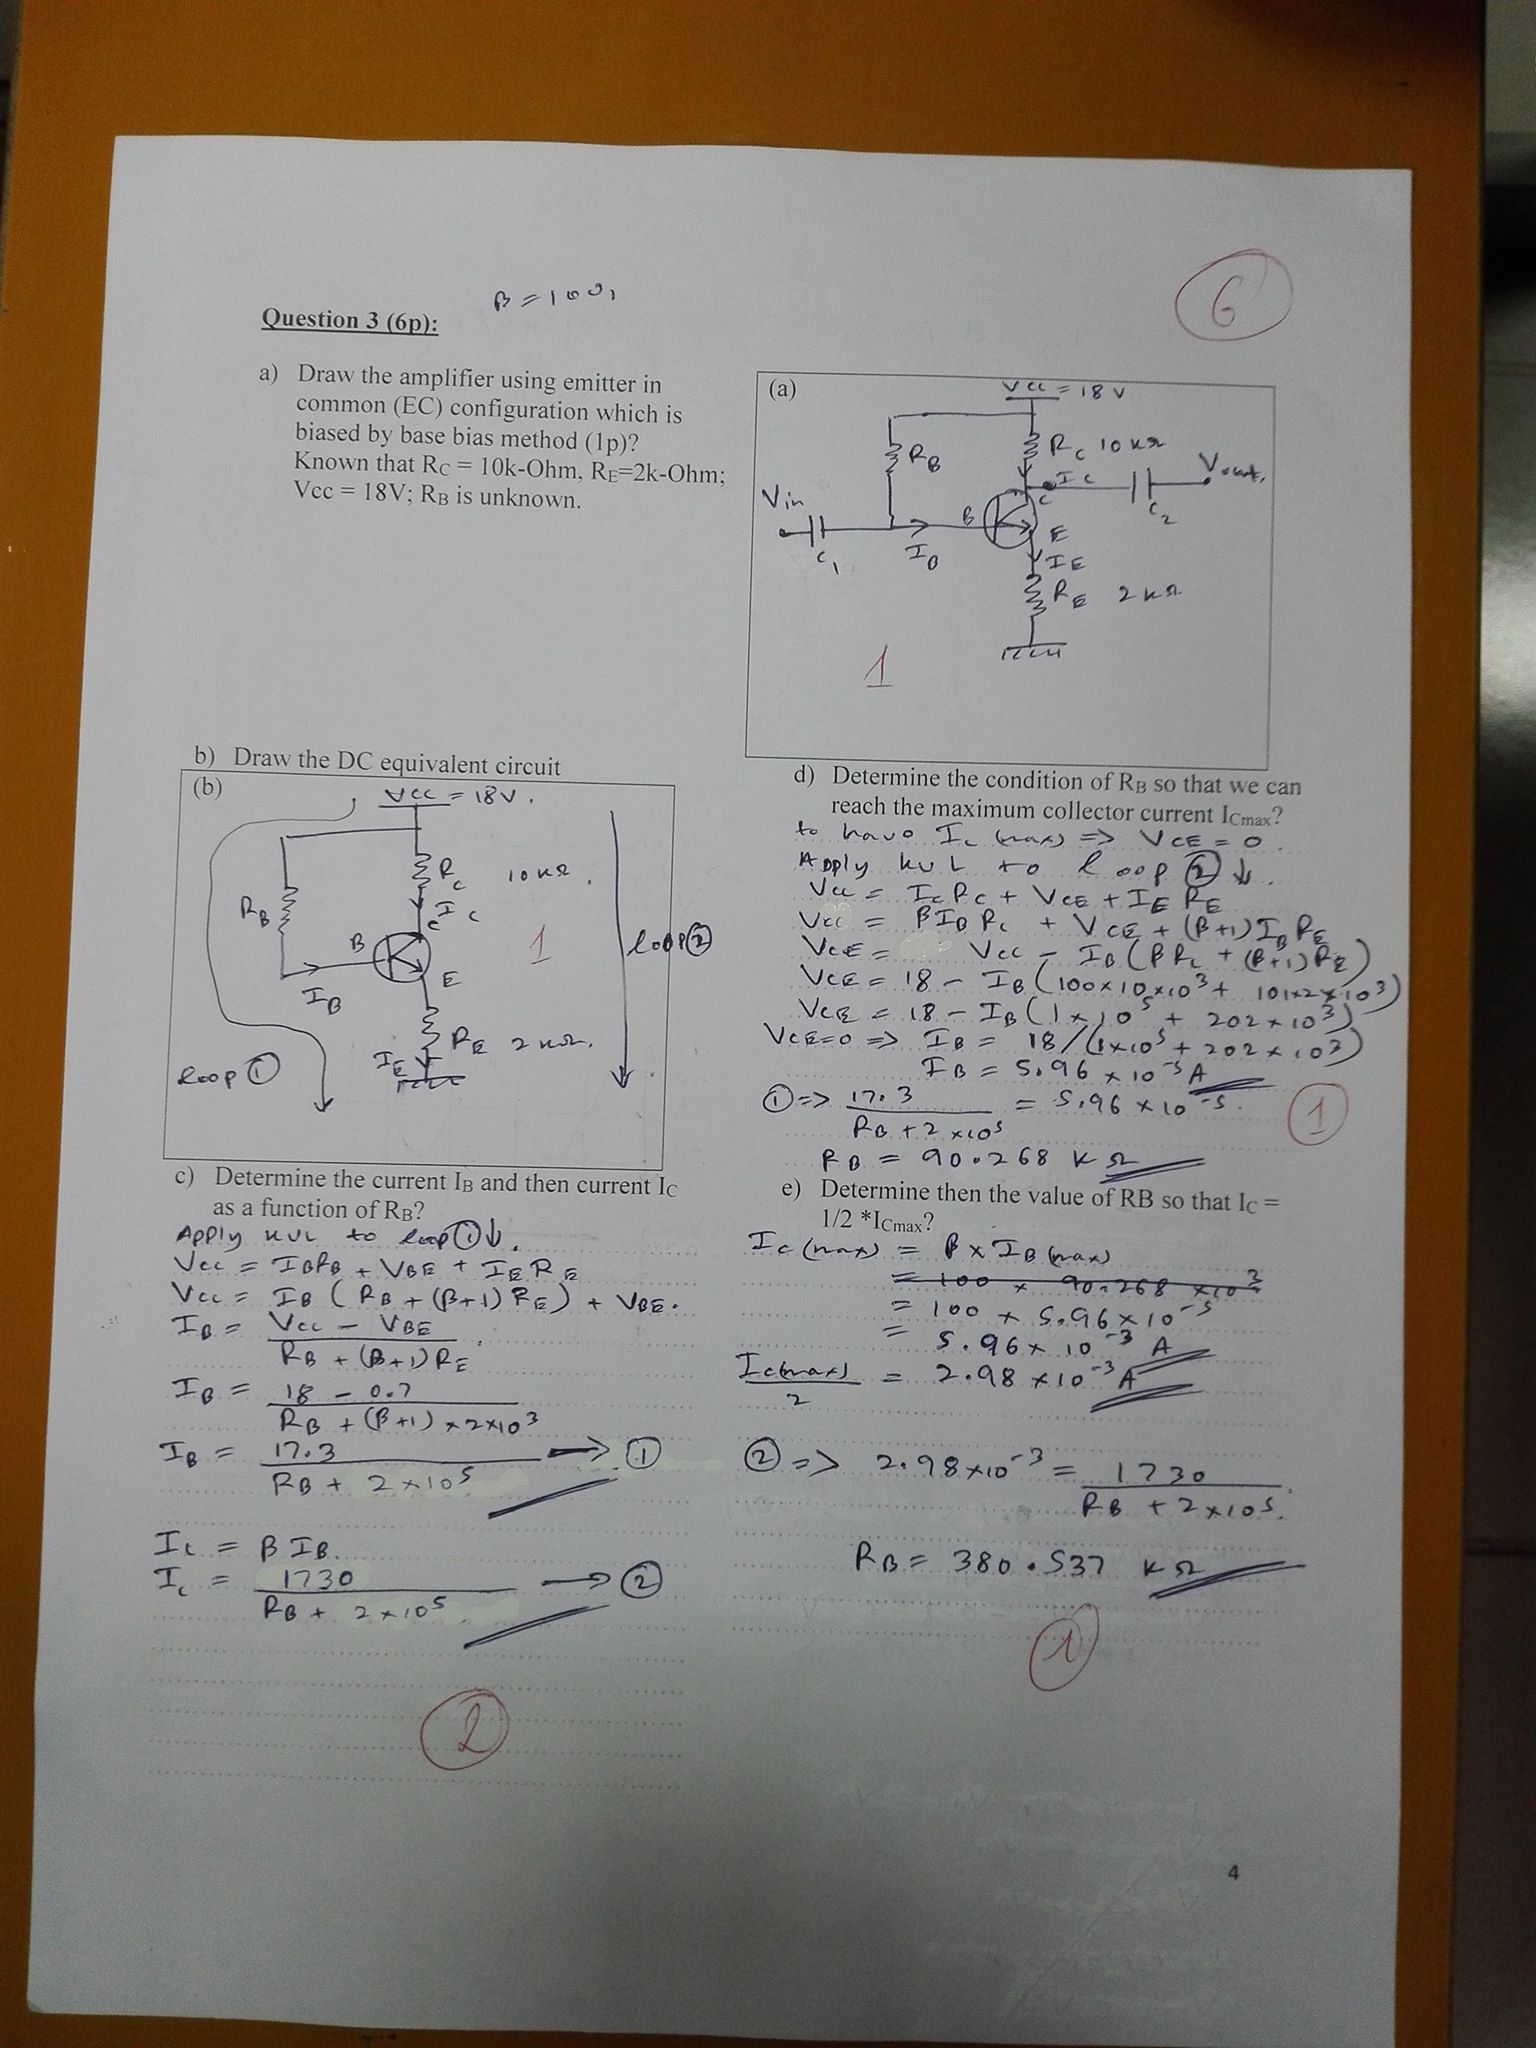 β = 100,
6
Question 3 (6p):
a) Draw the amplifier using emitter in
common (EC) configuration which is
biased by base bias method (1p)?
Known that RC = 10k-Ohm, RE=2k-Ohm;
Vcc = 18V; RB is unknown.
(a)
Vcc = 18 V
RB
RC 10 kΩ
IC
C
Vout.
Vin
B
C2
C1
IB
E
IE
RE 2 kΩ
1
b) Draw the DC equivalent circuit
(b)
Vcc = 18V.
RC 10 kΩ.
RB
IC
C
B
1
loop ②
E
IB
RE 2 kΩ.
IE
loop ①
c) Determine the current IB and then current IC
as a function of RB?
Apply KVL to loop ① ↓.
Vcc = IBRB + VBE + IE RE
Vcc = IB ( RB + (β+1) RE) + VBE.
IB = Vcc - VBE
RB + (β+1) RE
IB = 18 - 0.7
RB + (β+1) × 2×10³
IB = 17.3 → ①
RB + 2 × 10⁵
IC = β IB.
IC = 1730 → ②
RB + 2 × 10⁵
2
d) Determine the condition of RB so that we can
reach the maximum collector current ICmax?
to have IC (max) => VCE = 0.
Apply KVL to loop ② ↓.
Vcc = IC RC + VCE + IE RE
Vcc = β IB RC + VCE + (β+1) IB RE
VCE = Vcc - IB (β RC + (β+1) RE)
VCE = 18 - IB (100×10×10³ + 101×2×10³)
VCE = 18 - IB (1×10⁵ + 202×10³)
VCE=0 => IB = 18/(1×10⁵ + 202×10³)
IB = 5.96 × 10⁻⁵ A
① => 17.3 = 5.96 × 10⁻⁵.
RB + 2 ×10⁵
1
RB = 90.268 kΩ
e) Determine then the value of RB so that IC =
1/2 *ICmax?
IC (max) = β × IB (max)
= 100 × 90.268 ×10³
= 100 × 5.96 × 10⁻⁵
= 5.96 × 10⁻³ A
IC(max) = 2.98 ×10⁻³ A
2
② => 2.98×10⁻³ = 1730
RB + 2×10⁵.
RB = 380.537 kΩ
1
4